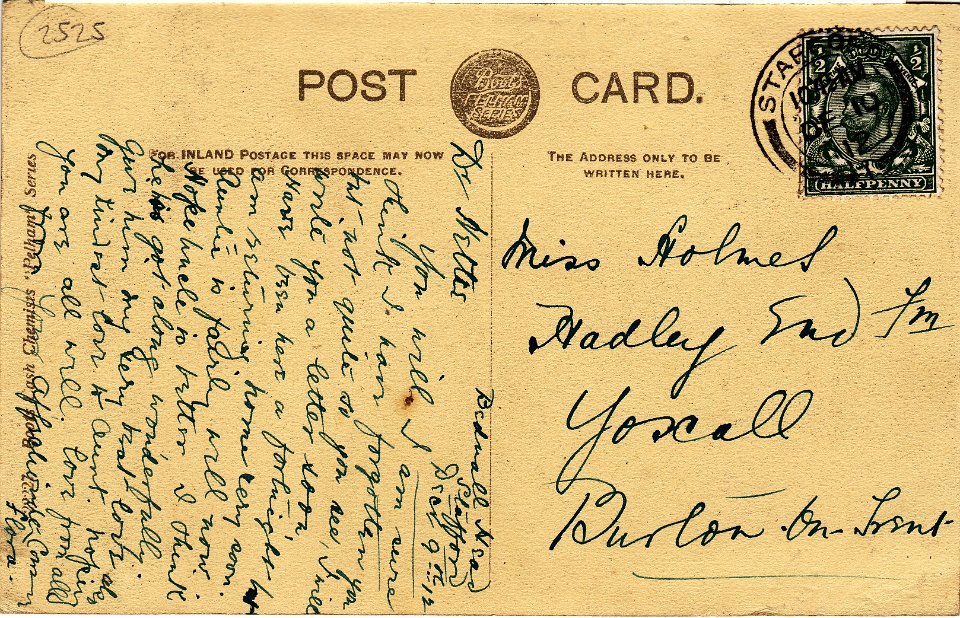 2525
POST CARD.
Boots
PELHAM
SERIES
FOR INLAND POSTAGE THIS SPACE MAY NOW
BE USED FOR CORRESPONDENCE.
THE ADDRESS ONLY TO BE
WRITTEN HERE.
STAFFORD
10
DE 10
12
½ ½
HALFPENNY
Pelham Series
Bednall Head
Stafford
Dec 9th 12
Dr Nettie
You will I am sure
think I have forgotten you
but not quite so you see, I will
write you a letter soon
Have been here a fortnight
am returning home very soon.
Auntie is fairly well now.
Hope Uncle is better I think
he is got along wonderfull.
Give him my very best love also
my kindest love to Aunt, hoping
you are all well. Love from all
From Affectionate
Flora.
Miss Holmes
Hadley End Fm
Yoxall
Burton-On-Trent